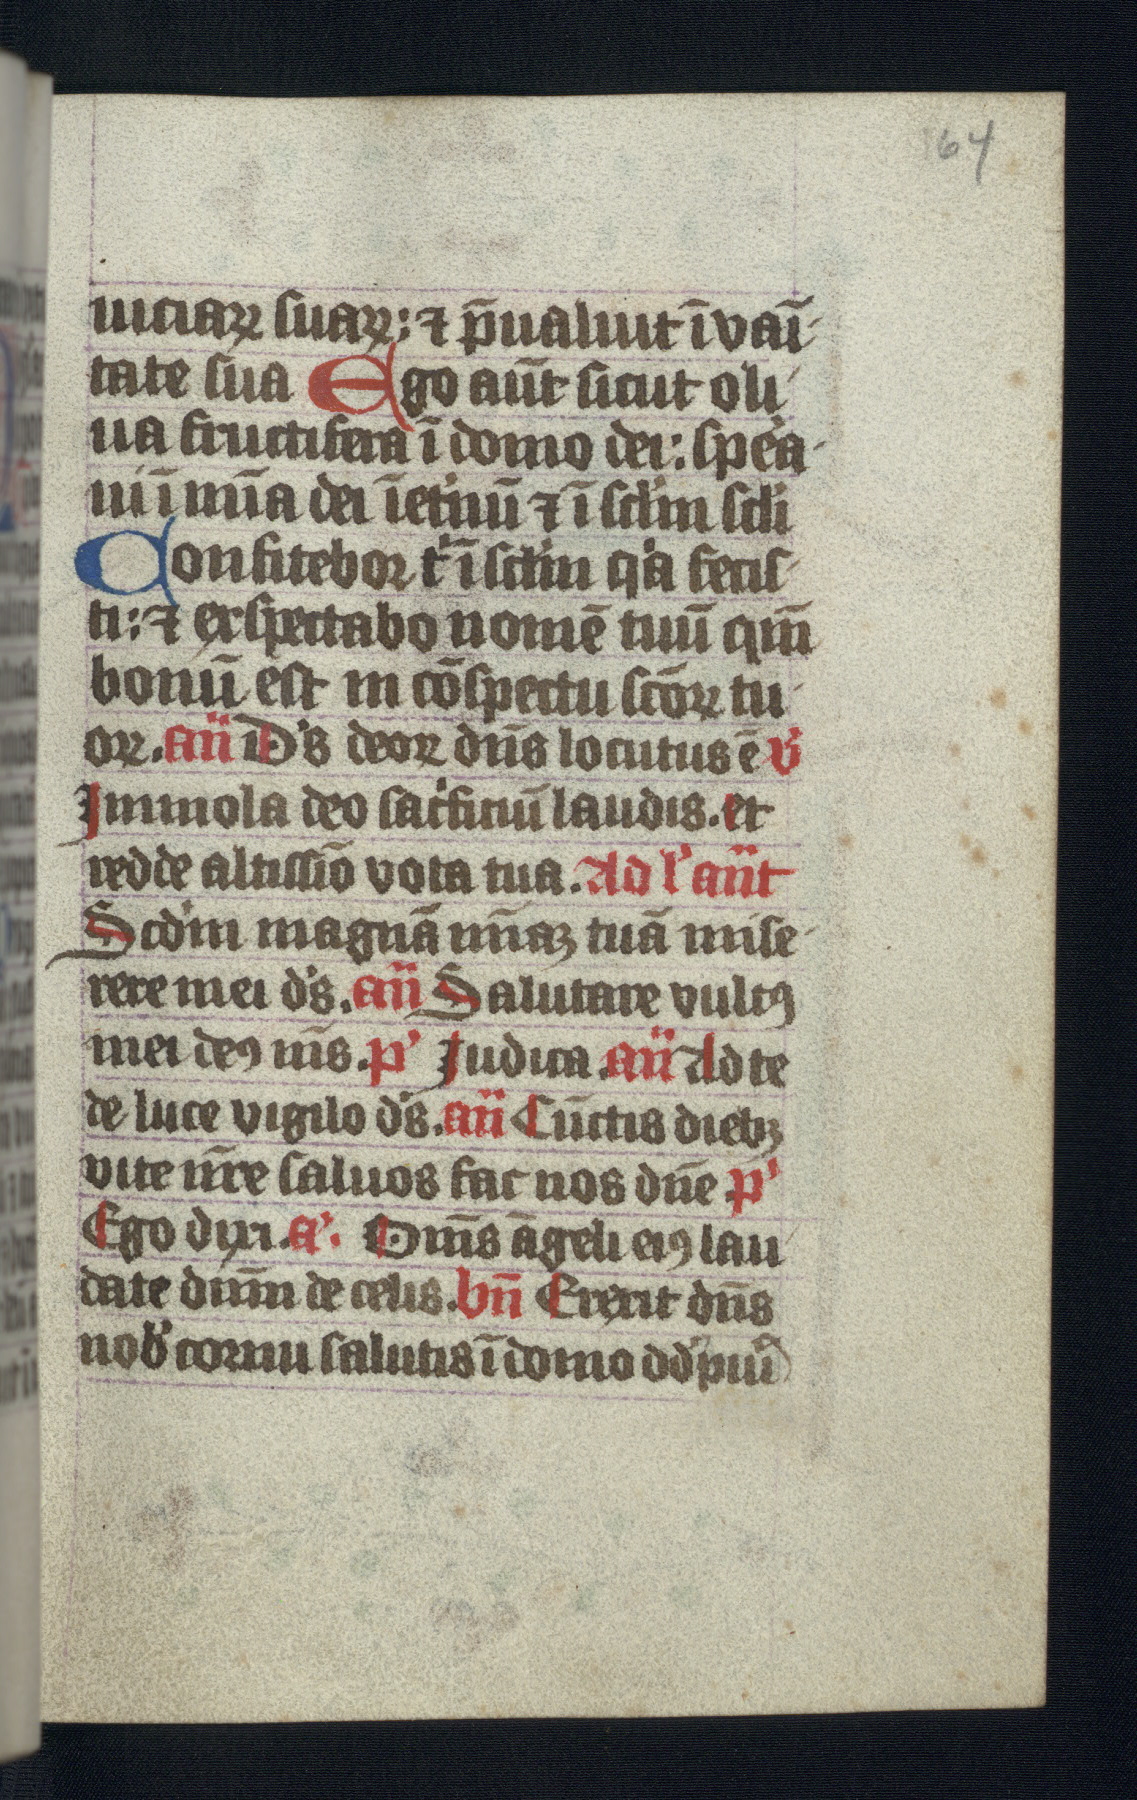 164
uiciaꝝ suaꝝ: ⁊ p̄ualuit ī vaī-
tate sua Ego aūt sicut oli-
ua fructifera ī domo dei: spea-
ui ī mīa dei īet'nū ⁊ ī sclm scli
Confitebor t' ī sclm qͥa fecis-
ti: ⁊ exspectabo nomē tuū qm̄
bonū est in cōspectu scōꝝ tu-
oꝝ. an̄ D's deoꝝ dn̄s locutus ē v'
Immola deo sac'ficiū laudis. et
redde altissīo vota tua. Ad l' an̄t
Scdm magnā mīaꝫ tuā mise-
rere mei d's. an̄ Salutare vultꝰ
mei deꝰ m̄s. p' Iudica. an̄ Ad te
de luce vigilo d's. an̄ Cūctis diebꝫ
vite nr̄e saluos fac nos dn̄e p'
Ego dixi. a'. Om̄s āgeli eiꝰ lau
date dn̄m de celis. bn̄ Erexit dn̄s
nob' cornu salutis ī domo dd' pui